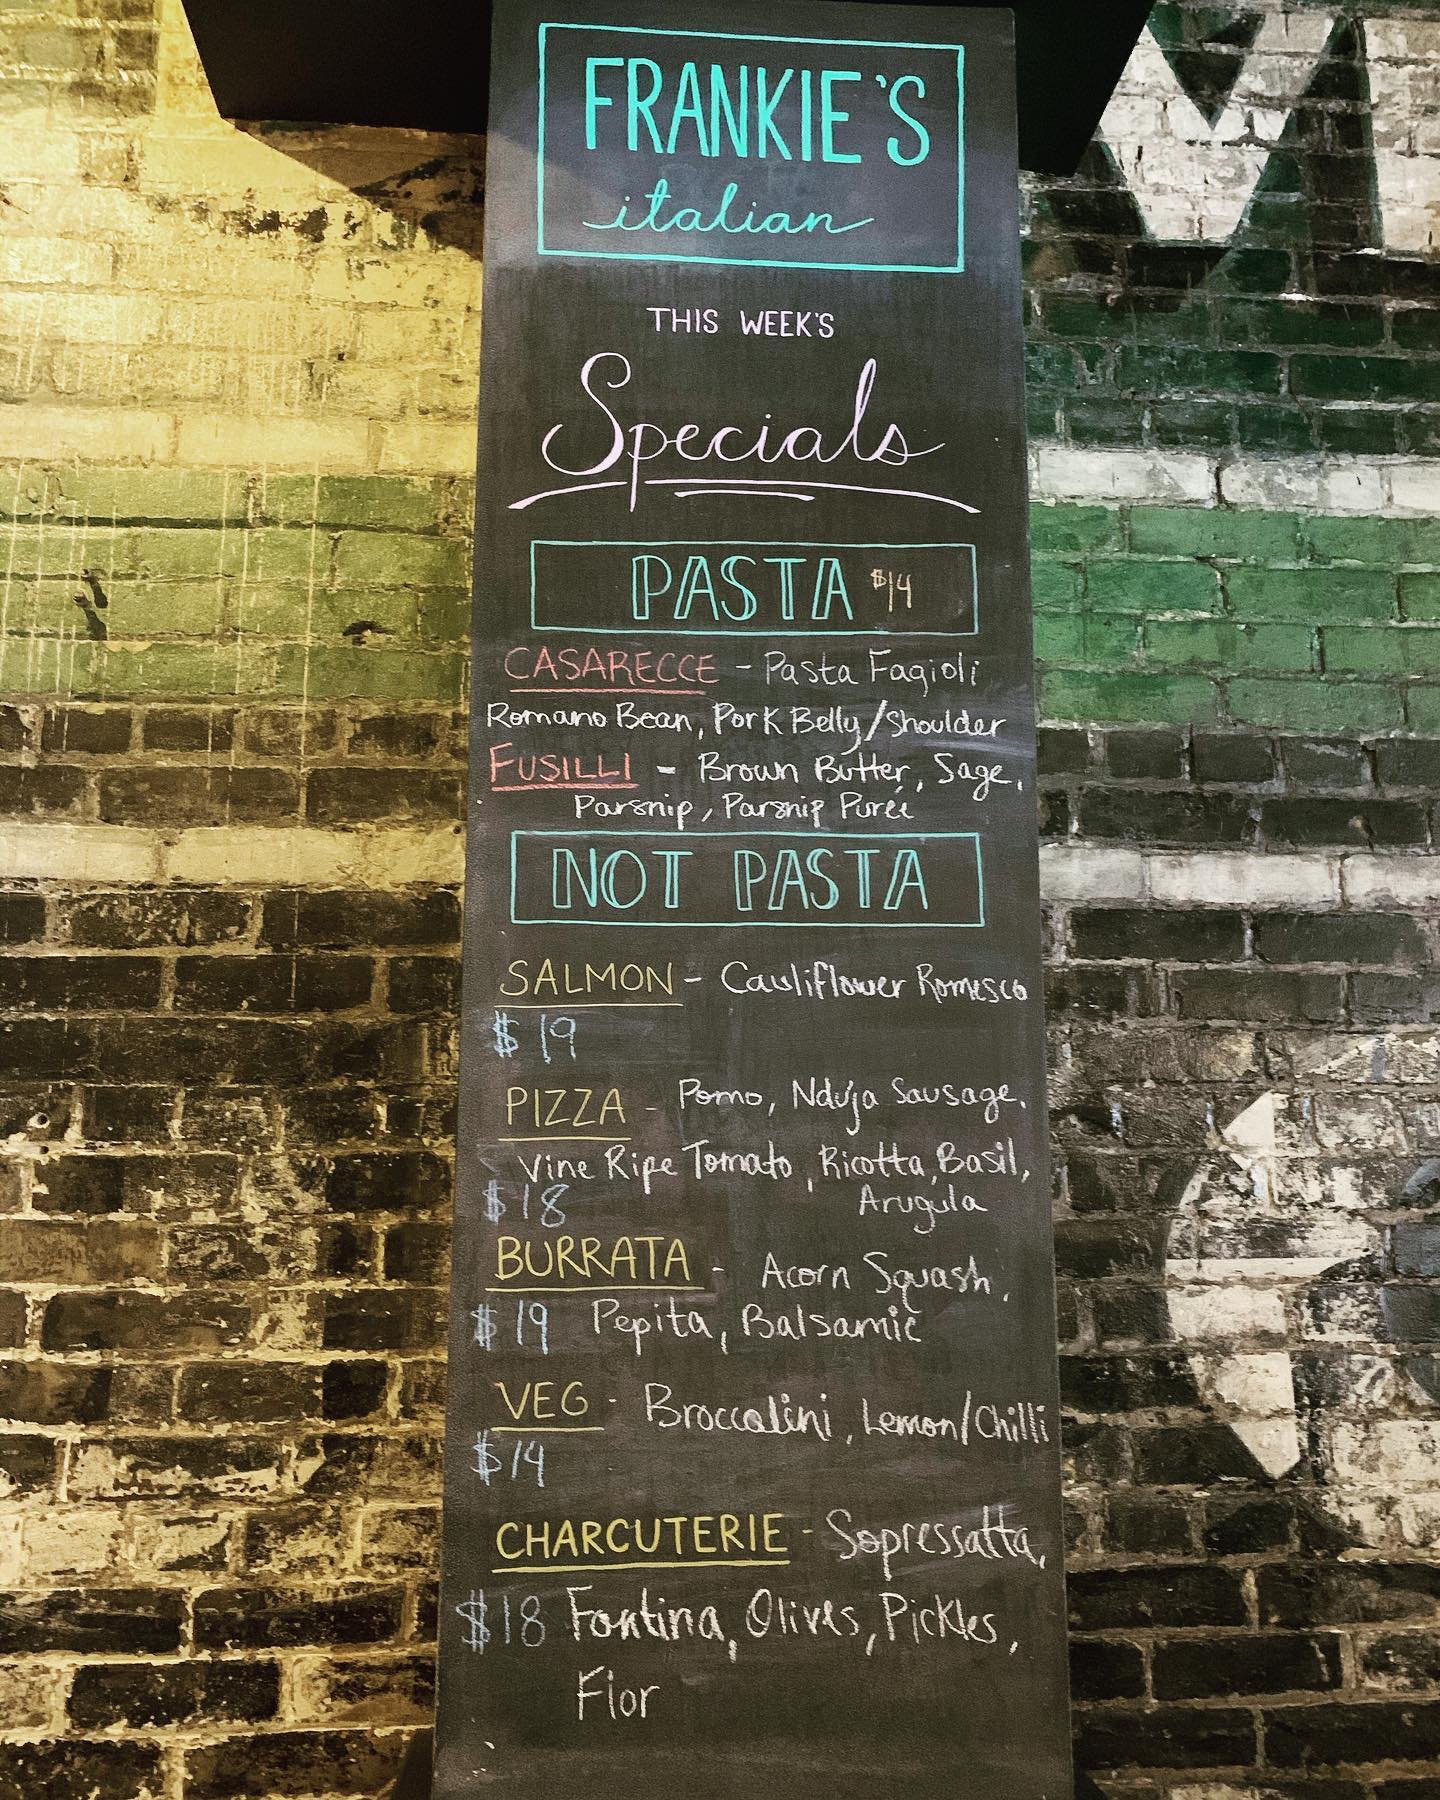 FRANKIE'S
italian
THIS WEEK'S
Specials
PASTA $14
CASARECCE - Pasta Fagioli
Romano Bean, Pork Belly/Shoulder
FUSILLI - Brown Butter, Sage,
Parsnip, Parsnip Purée
NOT PASTA
SALMON - Cauliflower Romesco
$19
PIZZA - Pomo, Nduja Sausage,
Vine Ripe Tomato, Ricotta, Basil,
$18 Arugula
BURRATA - Acorn Squash,
$19 Pepita, Balsamic
VEG - Broccolini, Lemon/Chilli
$14
CHARCUTERIE - Sopressatta,
$18 Fontina, Olives, Pickles,
Fior